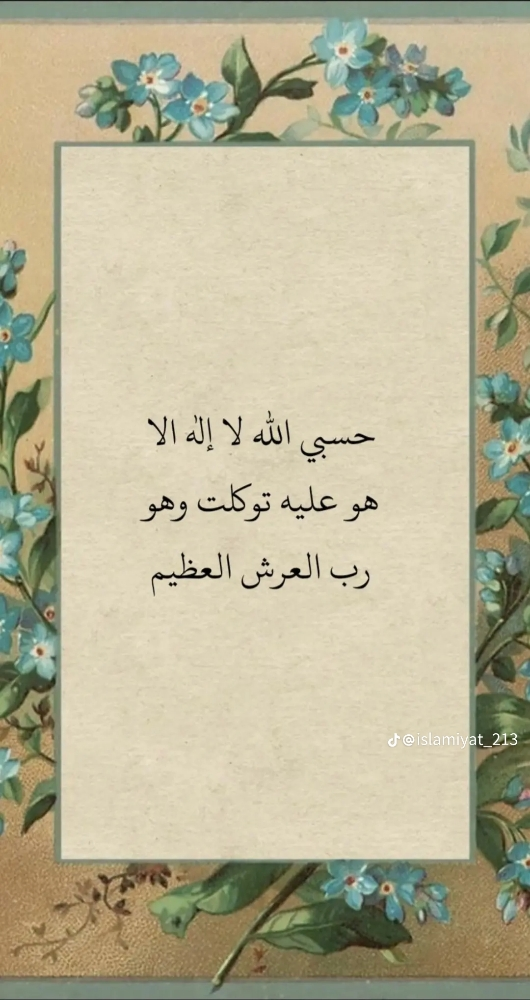 حسبي الله لا إله الا
هو عليه توكلت وهو
رب العرش العظيم
@islamiyat_213